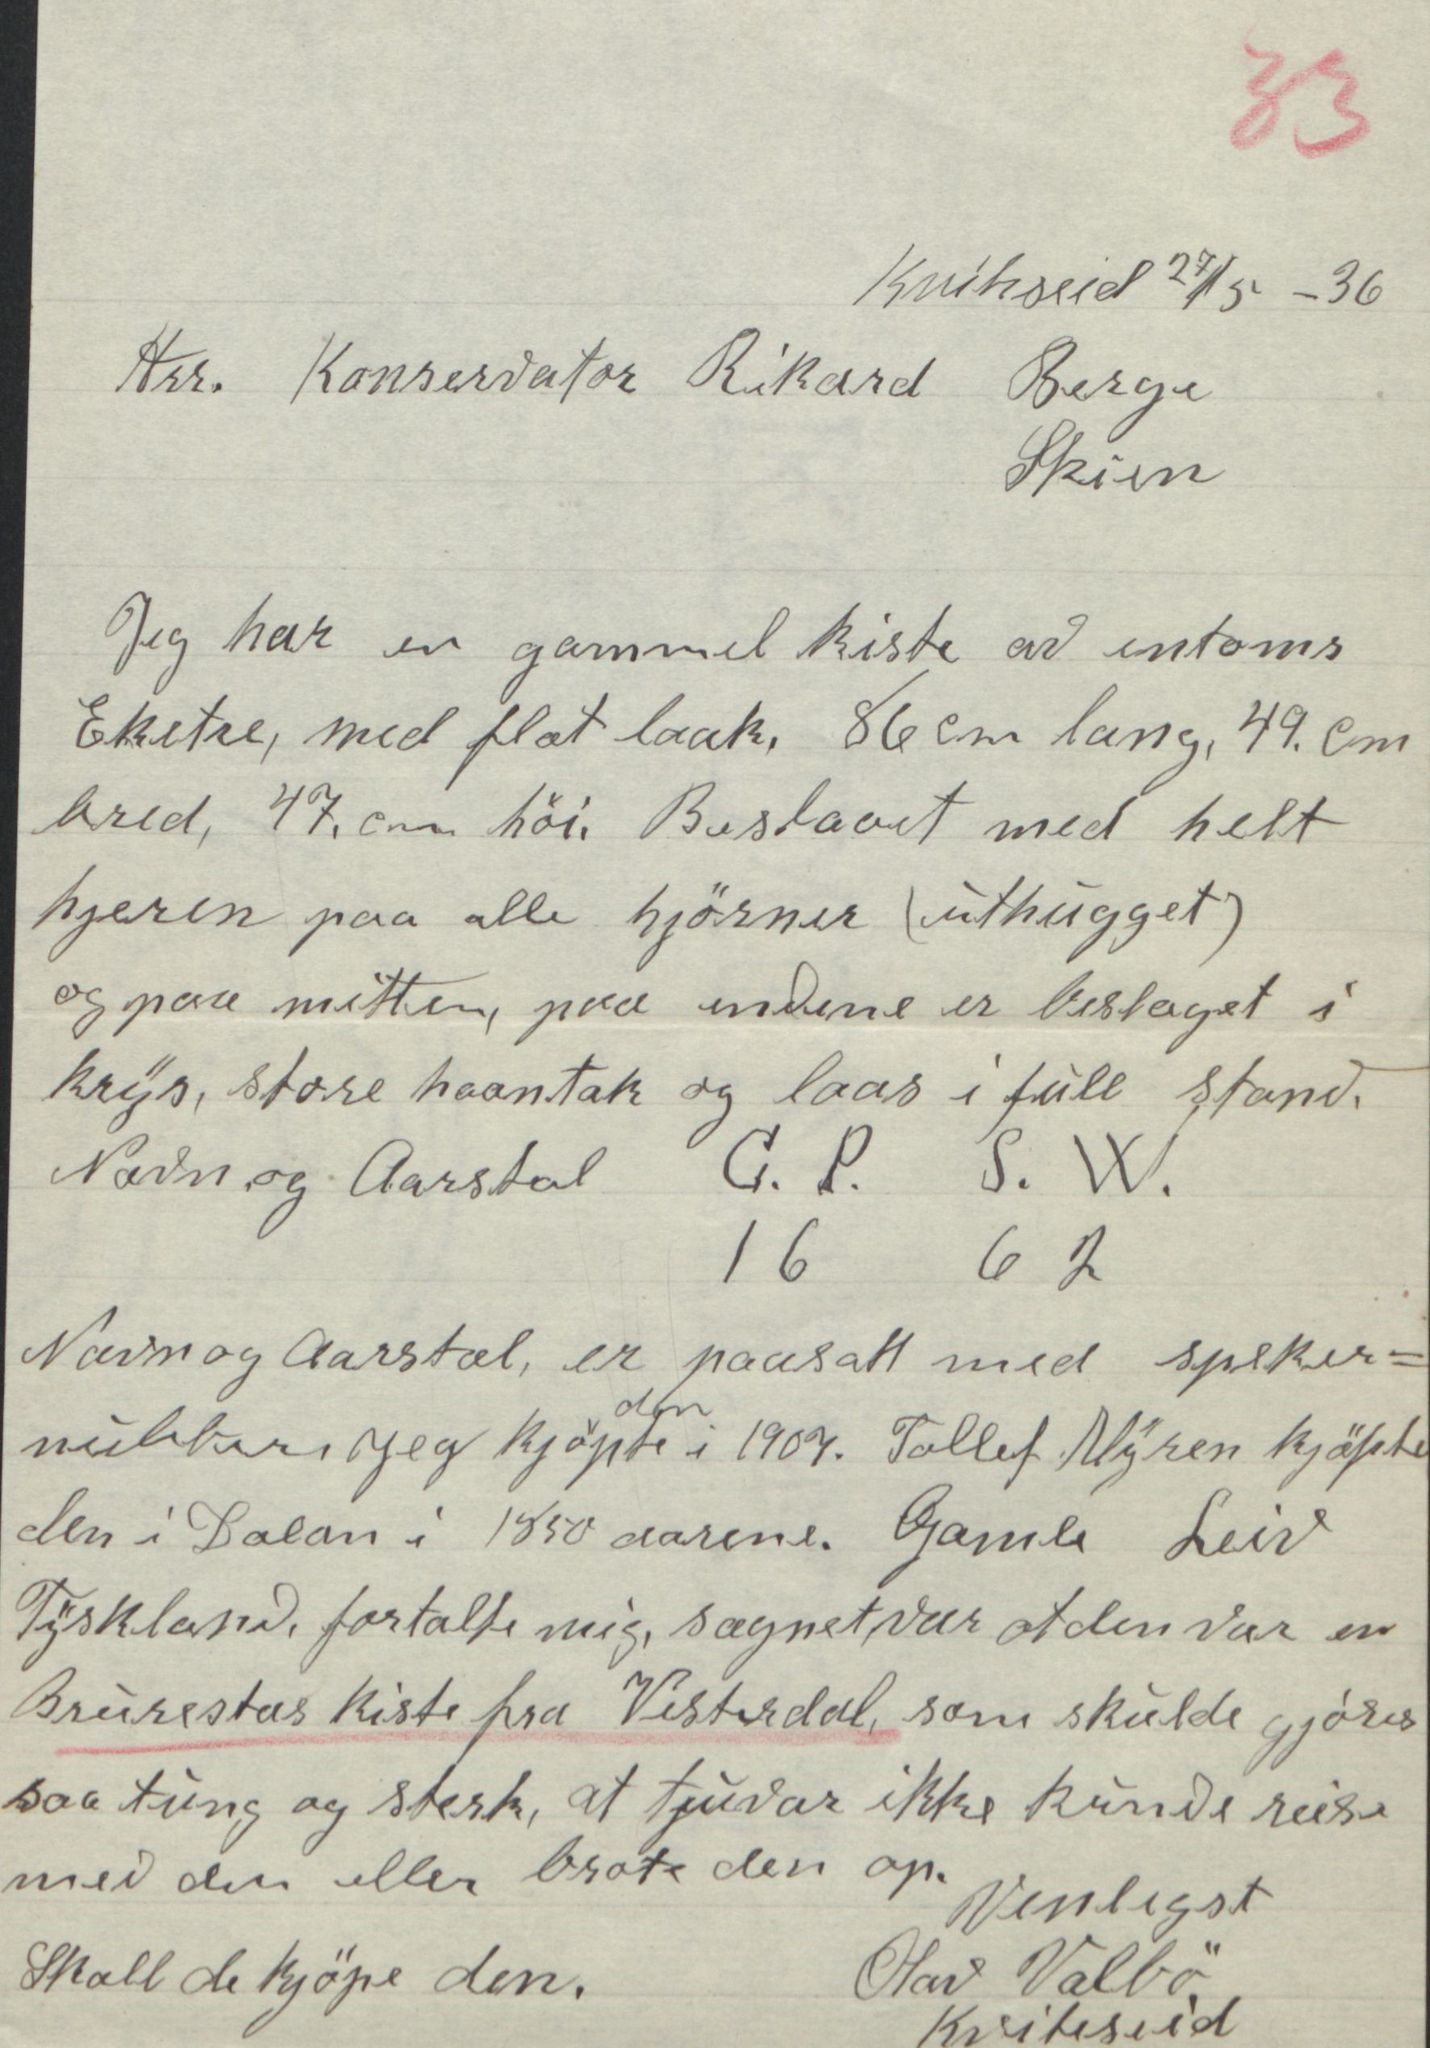 33
Kvitseid 27/5 - 36
Hrr. Konservator Rikard Berge
Skien
Jeg har en gammel kiste av entoms
Eketre, med flat laak, 86 cm lang, 49. cm
bred, 47. cm höi. Beslaaet med helt
hjeren paa alle hjörner (uthugget)
og paa mitten, paa endene er beslaget i
krys, store haantak og laas i full stand.
Navn og Aarstal G. P. S. W.
16 62
Navn og Aarstal, er paasatt med speker=
nubber, jeg kjöpte den i 1907. Tollef Myren kjöpte
den i Dalan i 1850 aarene. Gamle Leiv
Tyskland, fortalte mig, sagnet var at den var en
Brurestas kiste fra Vesterdal, som skulde gjöres
saa tung og sterk, at tjuvar ikke kunde reise
med den eller brote den op.
Venligst
Skall de kjöpe den. Olav Valbö
Kviteseid